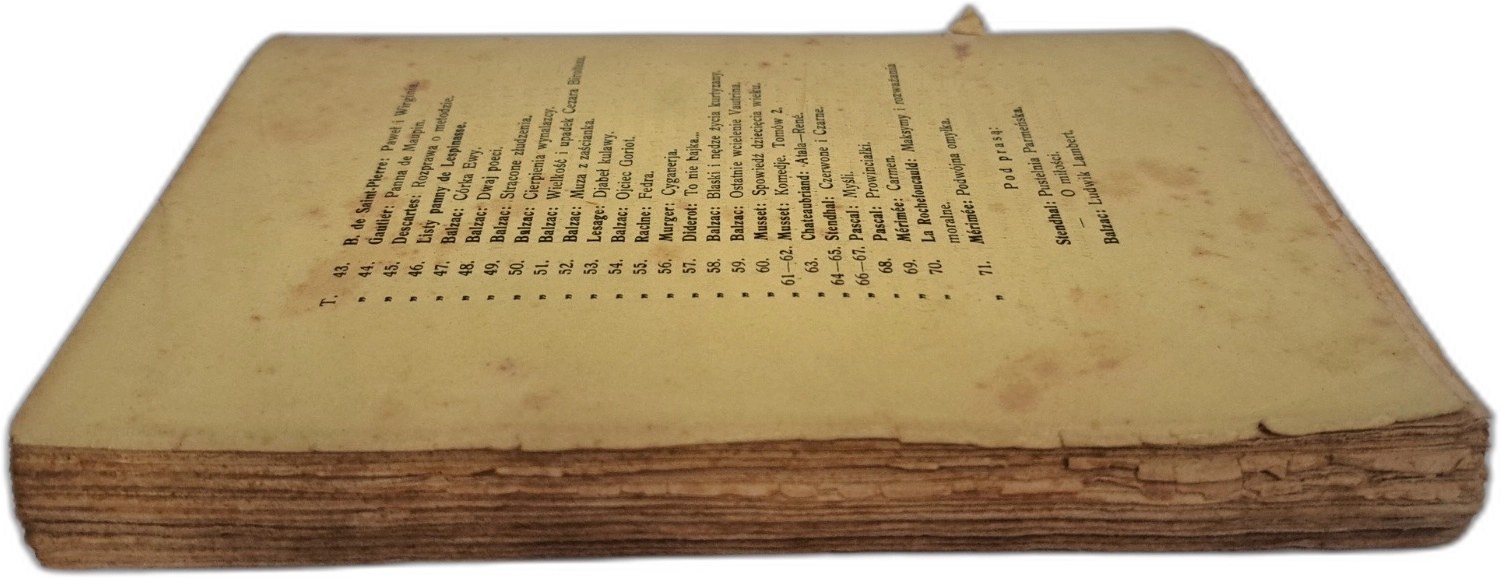 T. 43. B. de Saint-Pierre: Paweł i Wirginia.
„ 44. Gautier: Panna de Maupin.
„ 45. Descartes: Rozprawa o metodzie.
„ 46. Listy panny de Lespinasse.
„ 47. Balzac: Córka Ewy.
„ 48. Balzac: Dwaj poeci.
„ 49. Balzac: Stracone złudzenia.
„ 50. Balzac: Cierpienia wynalazcy.
„ 51. Balzac: Wielkość i upadek Cezara Birotteau.
„ 52. Balzac: Muza z zaścianka.
„ 53. Lesage: Djabeł kulawy.
„ 54. Balzac: Ojciec Goriot.
„ 55. Racine: Fedra.
„ 56. Murger: Cyganerja.
„ 57. Diderot: To nie bajka...
„ 58. Balzac: Blaski i nędze życia kurtyzany.
„ 59. Balzac: Ostatnie wcielenie Vautrina.
„ 60. Musset: Spowiedź dziecięcia wieku.
„ 61—62. Musset: Komedje. Tomów 2.
„ 63. Chateaubriand: Atala—René.
„ 64—65. Stendhal: Czerwone i Czarne.
„ 66—67. Pascal: Myśli.
„ 68. Pascal: Prowincjałki.
„ 69. Mérimée: Carmen.
„ 70. La Rochefoucauld: Maksymy i rozważania
moralne.
„ 71. Mérimée: Podwójna omyłka.
Pod prasą:
Stendhal: Pustelnia Parmeńska.
— O miłości.
Balzac: Ludwik Lambert.